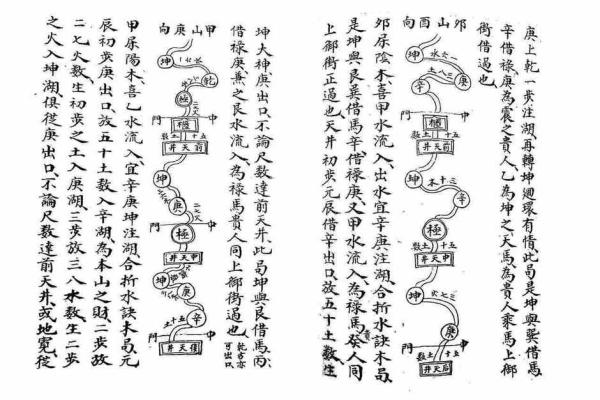 庚上乾一步注湖再轉坤廻環有情此局是坤與巽借馬
辛借祿庚為震之貴人乙為坤之天馬為貴人乘馬上御
街借過也
卯山酉向
坤
一六水
三八土
辛
門
中
五十土数
前天井
坤
三十木
辛
極
五十土数
中天井
坤
二七火
庚
門
中
五十土数
后天井
卯屬陰木喜甲水流入出水宜辛庚注湖合折水訣本局
是坤與艮巽借馬辛借祿庚又甲水流入為祿馬癸人同
上御街正過也天井初步元辰借辛出口放五十土数生
坤大神庚出口不論尺数達前天井此局坤與艮借馬丙
借祿庚兼之艮水流入為祿馬貴人同上御街過也
乾方亦可出口
甲山庚向
坤
乾
極
二七火
門
中
五十土数
前天井
坤
庚
二七火
極
門
中
中天井
坤
庚
辛
五十土
門
中
后天井
甲屬陽木喜乙水流入宜辛庚坤注湖合折水訣本局元
辰初步庚出口放五十土数入辛湖為本山之財二步放
二七火数生初步之土入庚湖三步放三八木数生二步
之火入坤湖俱從庚出口不論尺数達前天井或地寬從